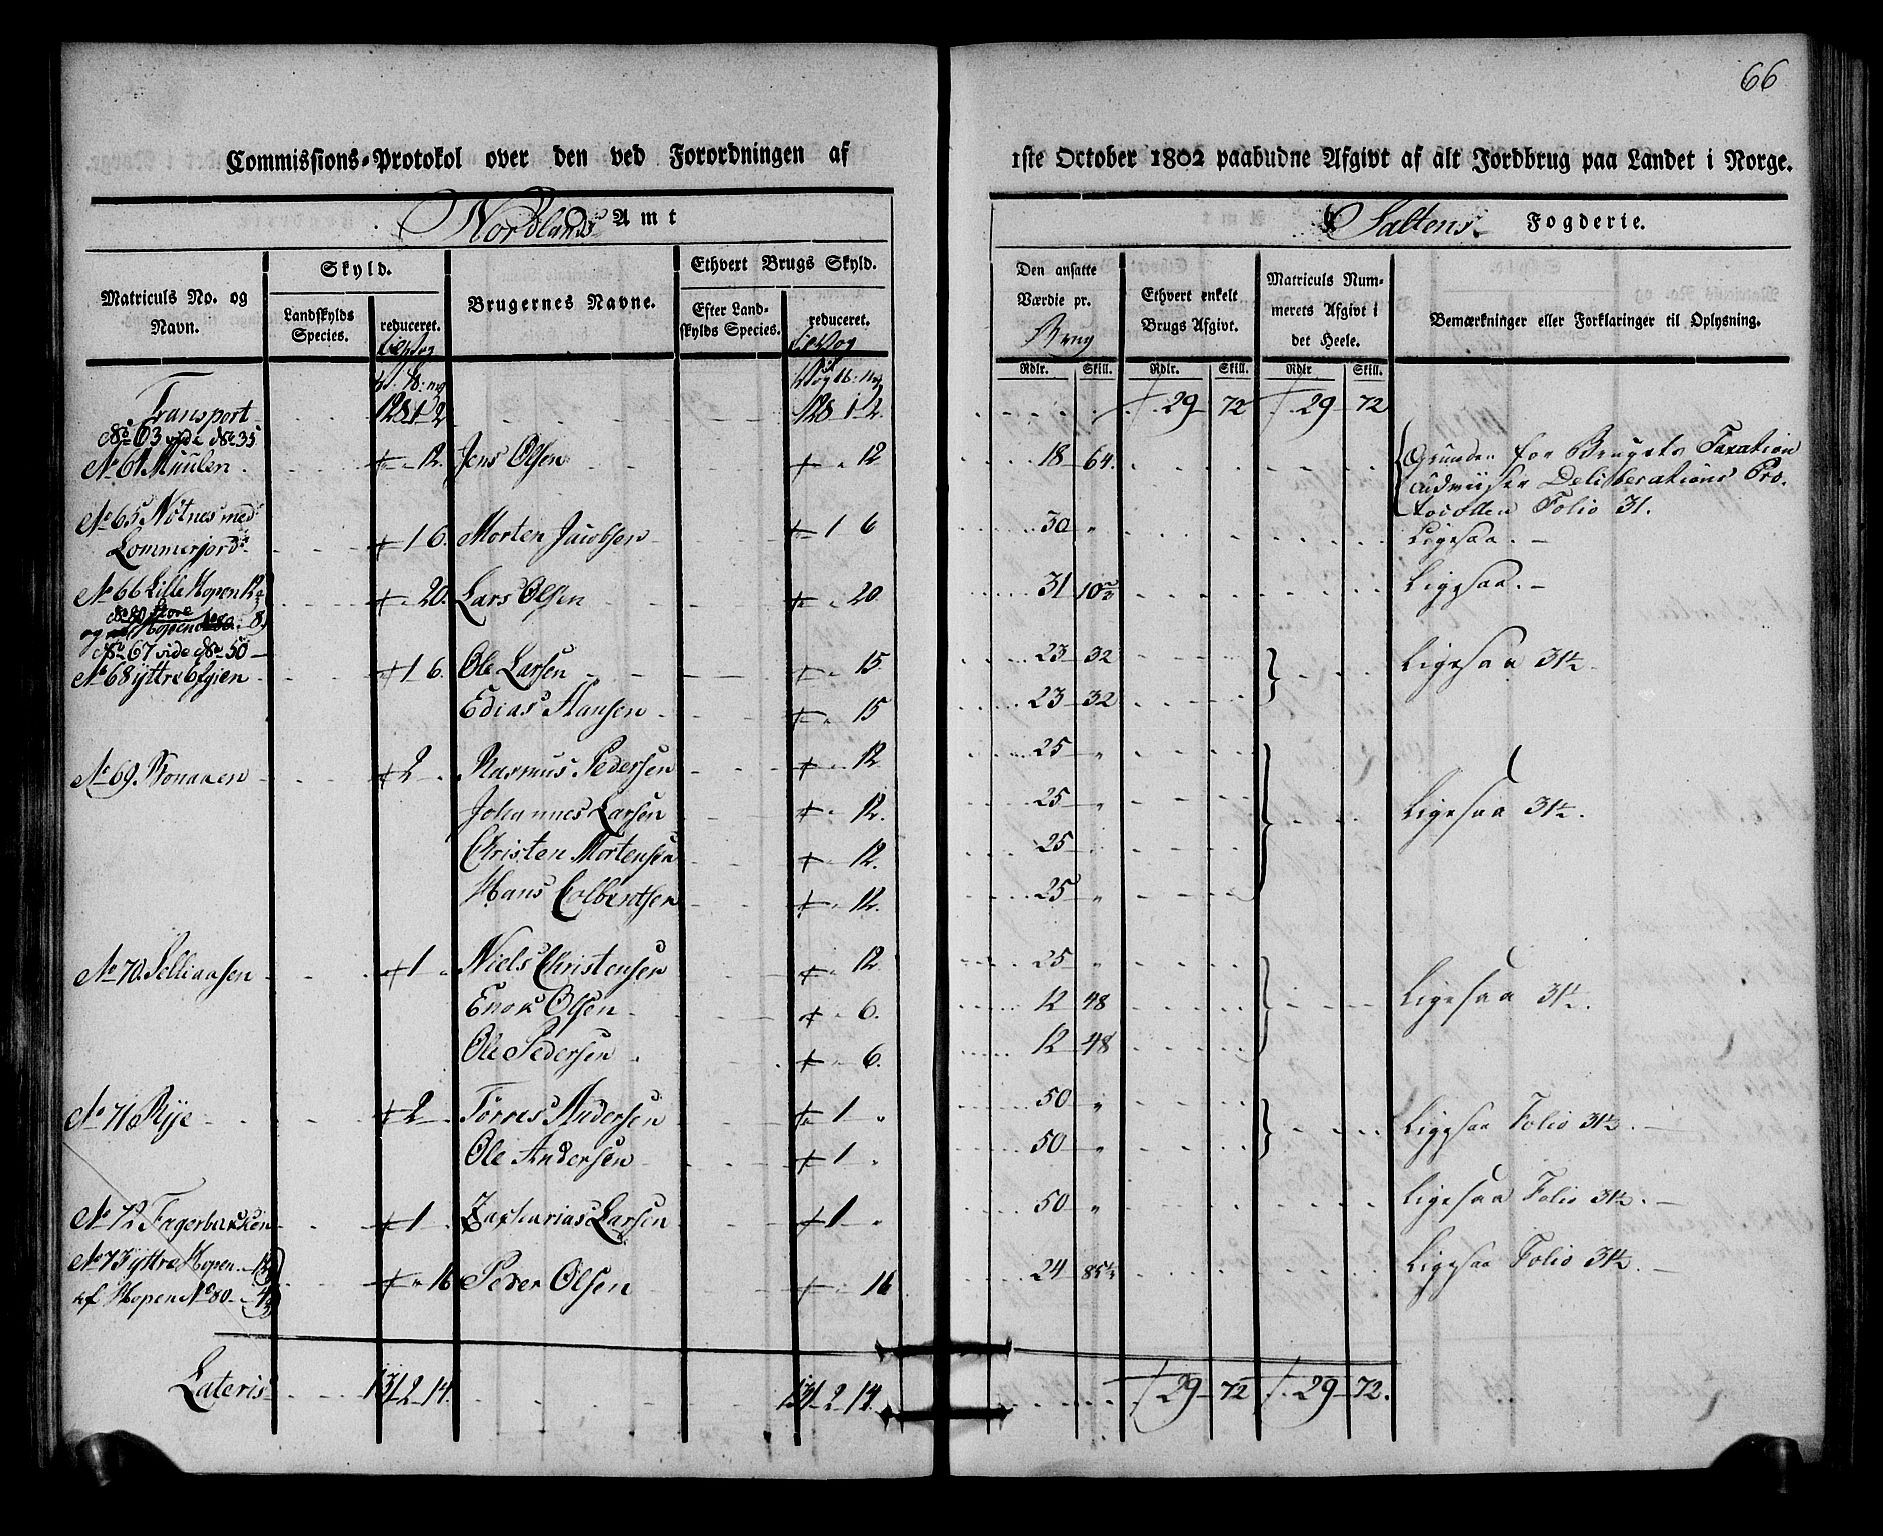 66
Commissions-Protokol over den ved Forordningen af 1ste October 1802 paabudne Afgivt af alt Jordbrug paa Landet i Norge.
Nordlands Amt Saltens Fogderie.
Matriculs No. og Navn.
Skyld.
Landskylds Species.
reduceret.
Brugernes Navne.
Ethvert Brugs Skyld.
Efter Landskylds Species.
reduceret.
Den ansatte Værdie pr. Brug
Rdlr. Skill.
Ethvert enkelt Brugs Afgivt.
Rdlr. Skill.
Matriculs Nummerets Afgivt i det Heele.
Rdlr Skill.
Bemærkninger eller Forklaringer til Oplysning.
Transport 128 1 2 128 1 2 29 72 29 72
No 63 vide No 35
No 64 Muulen 12 Jens Olsen 12 18 64 Grunden for Brugets Taxation
udviiser Deliberations Pro-
tocollen Folio 31.
No 65 Nötnes med
Lommerjord 1 6 Morten Jacobsen 1 6 50 " Ligesaa
No 66 Lille Hopen 12
og No 80 Store Hopen 8 20 Lars Olsen 20 31 10 Ligesaa
No 67 vide No 50
No 68 Yttre Efjien 1 6 Ole Larsen 15 23 32 Ligesaa 31½
Edias Hansen 15 23 32
No 69 2 Rasmus Pedersen 12 25 "
Johannes Larsen 12 25 " Ligesaa 31½.
Christen Mortensen 12 25
Hans Colbentsen 12 25 "
No 70 Selliaasen 1 Niels Christensen 12 25 "
Enok Olsen 6 12 48 Ligesaa 31½.
Ole Pedersen 6 12 48
No 71 Rye 2 Törres Andersen 1 " 50 " Ligesaa Folio 31½
Ole Andersen 1 " 50 "
No 72 Fagerbakken 1 Zacharias Larsen 1 " 50 " Ligesaa Folio 31½
No 73 Yttre Hopen
af Hopen No 80 16 Peder Olsen 16 24 85⅓ Ligesaa Folio 31½
Lateris 131 2 14 131 2 14 29 72 29 72